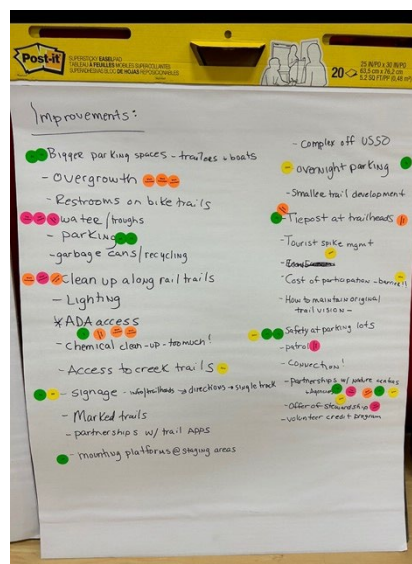 Post-it
SUPERSTICKY EASEL PAD
TABLEAU À FEUILLES MOBILES SUPERCOLLANTES
20
25 IN/PO x 30 IN/PO
63,5 cm x 76,2 cm
Improvements:
Bigger parking spaces - trailers + boats
- Overgrowth
- Restrooms on bike trails
water/troughs
- parking
- garbage cans/recycling
Clean up along rail trails
- Lighting
* ADA access
- Chemical clean-up - too much!
- Access to creek trails
- signage - info/trailheads → directions → single track
- Marked trails
- partnerships w/ trail APPS
- mounting platforms @ staging areas
- Complex off US50
- overnight parking
- Smaller trail development
- Tiepost at trailheads
- Tourist spike mgmt
- Cost of participation - barrier
- How to maintain original
trail vision -
Safety at parking lots
- patrol
- connection!
- partnerships w/ nature centers
- Offer of stewardship
- volunteer credit program